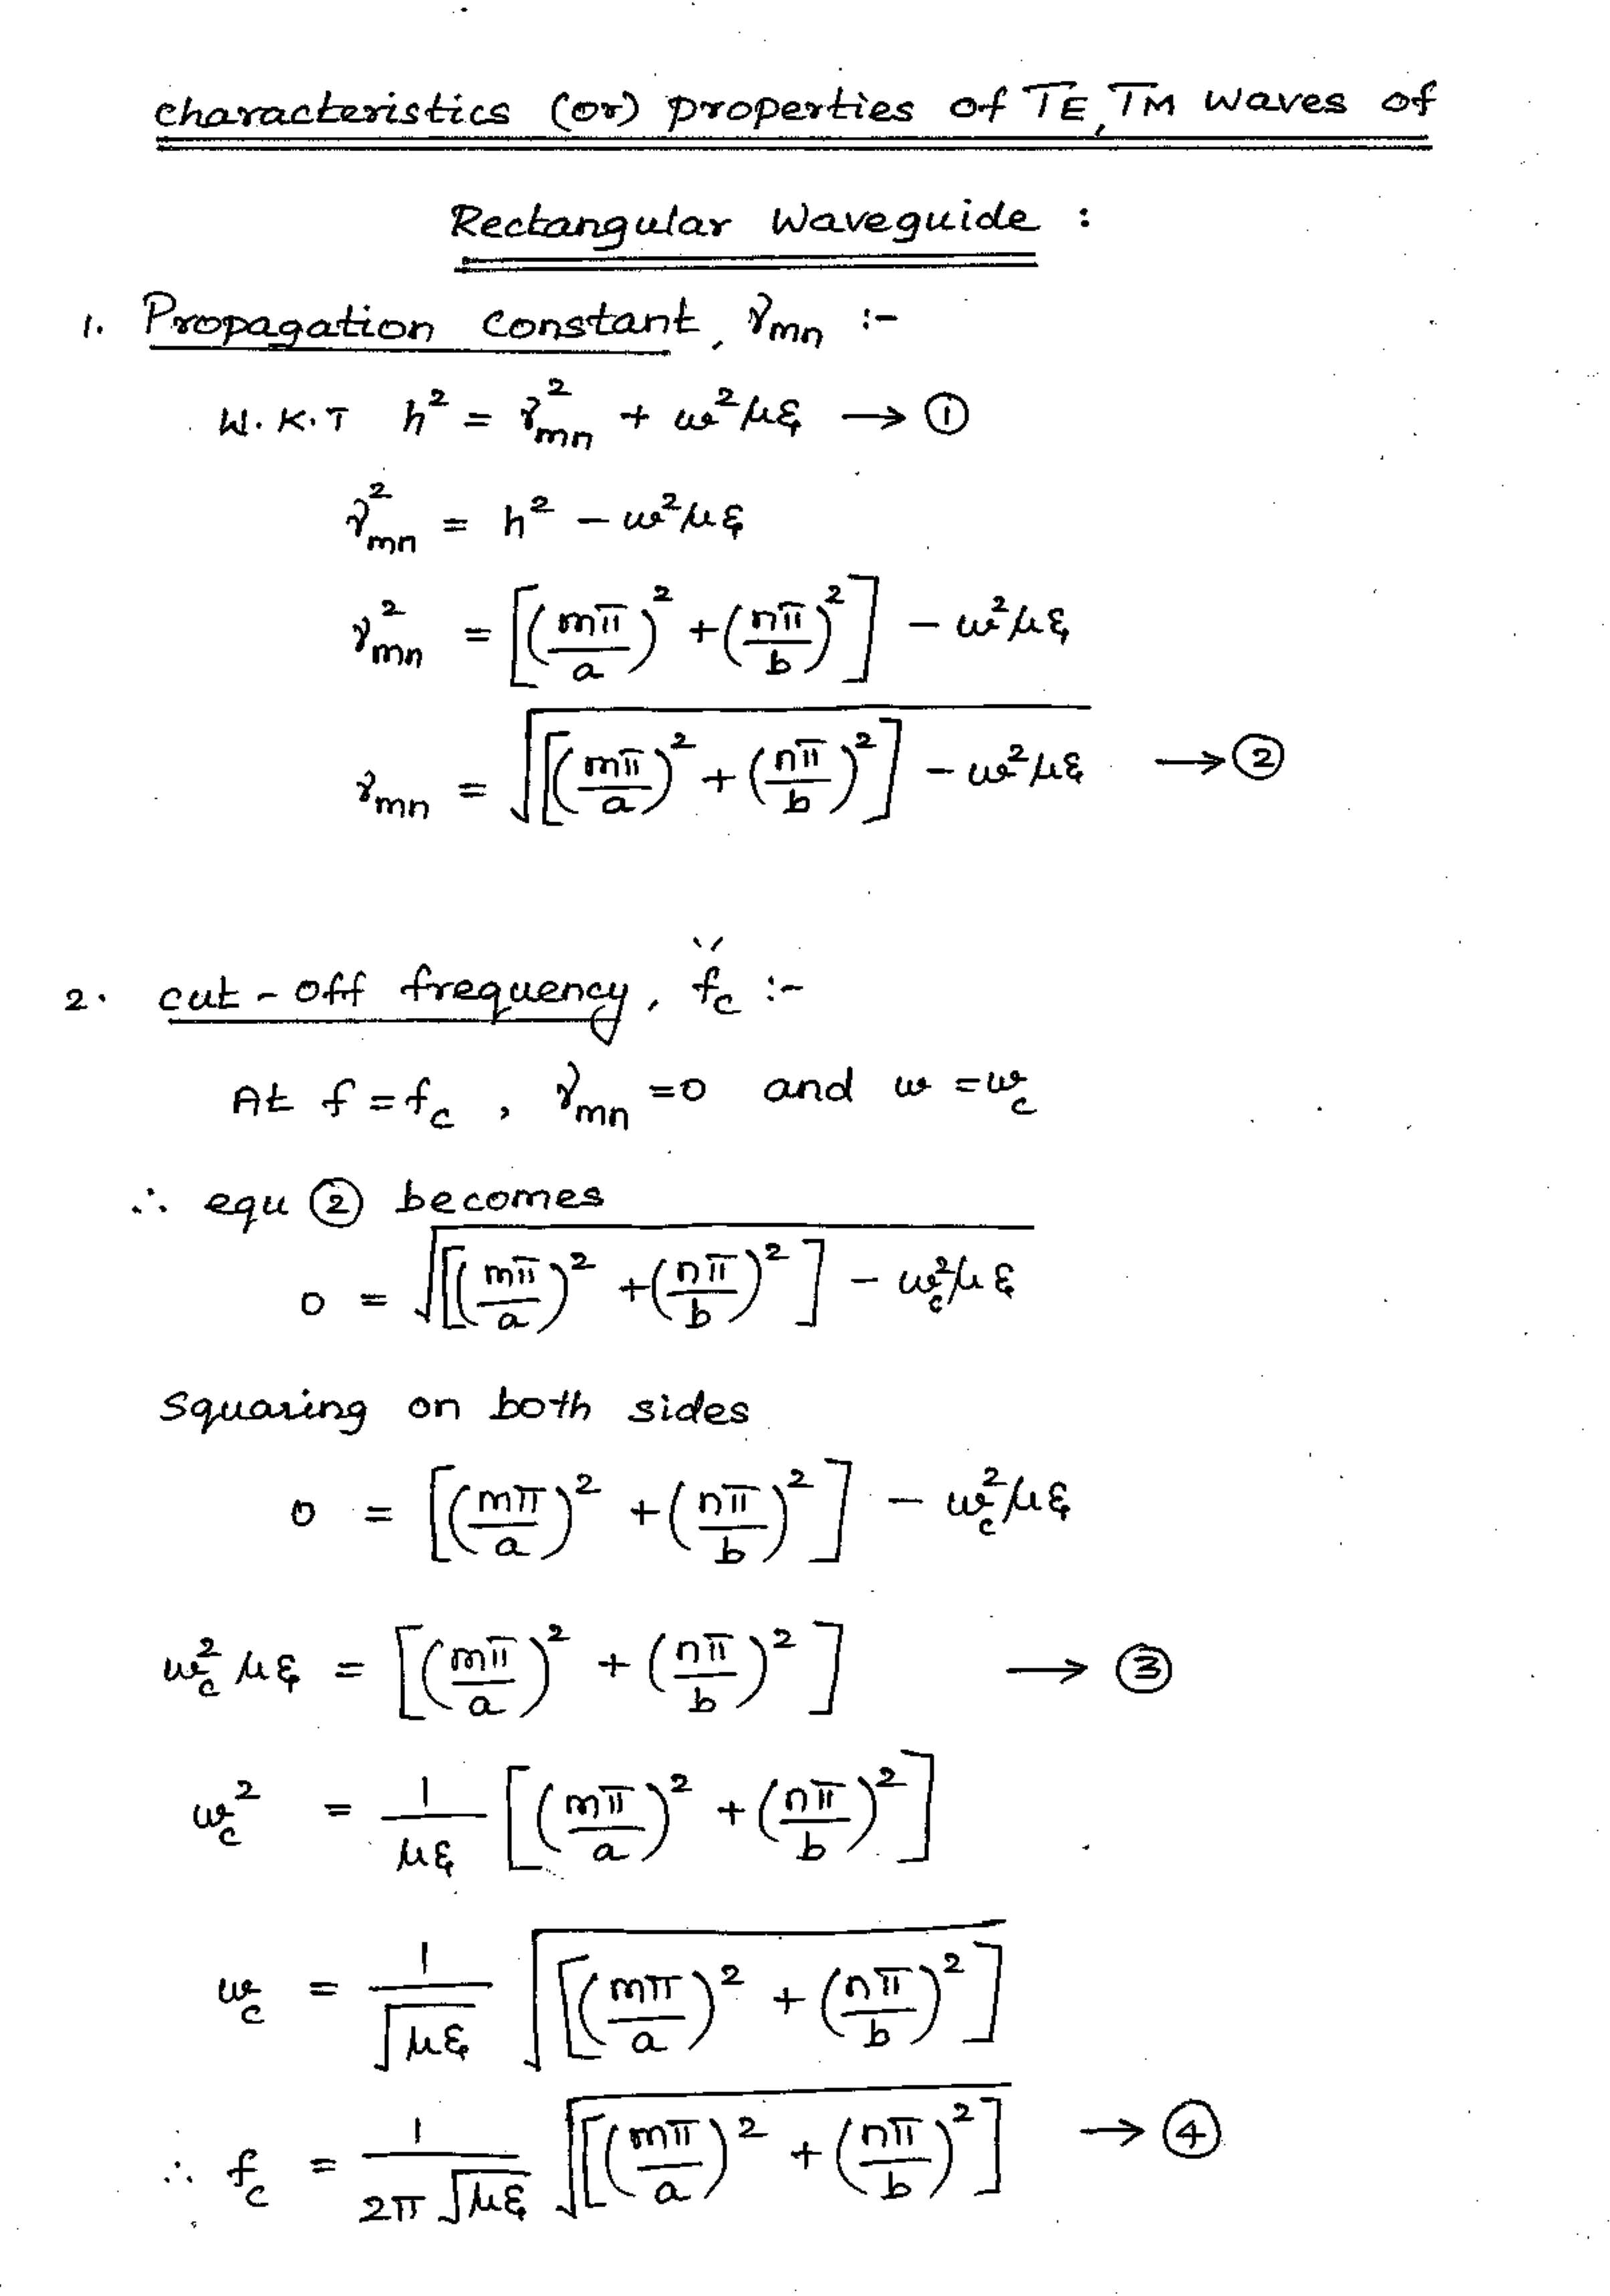 characteristics (or) properties of TE, TM waves of
Rectangular Waveguide :
1. Propagation constant, γmn :-
W.K.T h² = γ²mn + ω²με → ①
γ²mn = h² - ω²με
γ²mn = [(mπ/a)² + (nπ/b)²] - ω²με
γmn = √([(mπ/a)² + (nπ/b)²] - ω²με) → ②
2. cut-off frequency, fc :-
At f = fc , γmn = 0 and ω = ωc
∴ equ ② becomes
0 = √([(mπ/a)² + (nπ/b)²] - ωc²με)
Squaring on both sides
0 = [(mπ/a)² + (nπ/b)²] - ωc²με
ωc²με = [(mπ/a)² + (nπ/b)²] → ③
ωc² = 1/με [(mπ/a)² + (nπ/b)²]
ωc = 1/√με √[(mπ/a)² + (nπ/b)²]
∴ fc = 1/2π√με √[(mπ/a)² + (nπ/b)²] → ④